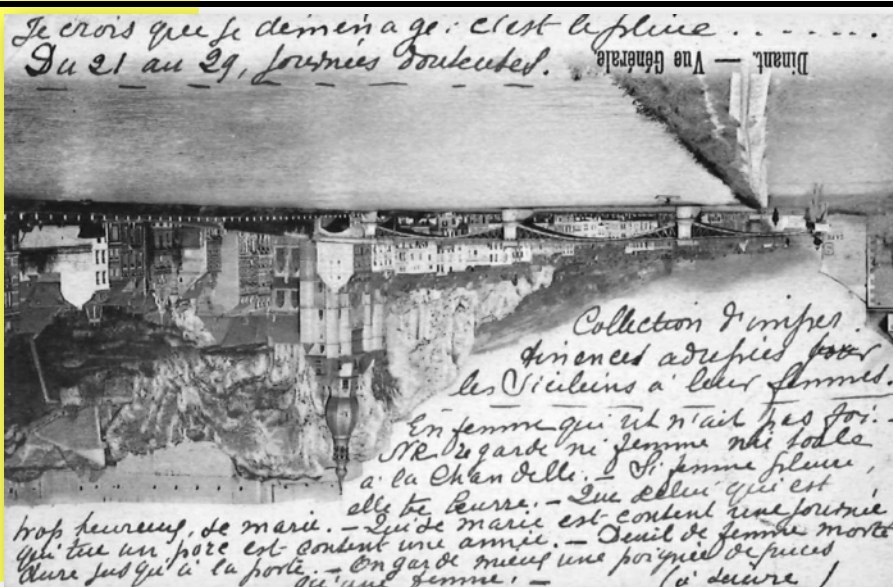 Je crois que je déménage: c'est la pluie ........
Du 21 au 29, journées douteuses.
Dinant. — Vue Générale.
Collection d'imper-
tinences adressées
les Siciliens à leur femmes.
En femme qui rit n'ait pas foi. -
Ne regarde ni femme ni toile
à la Chandelle. - Si femme pleure,
elle te leurre. - Que celui qui est
trop heureux, se marie. - Qui se marie est content une journée
qui tue un porc est content une année. - Deuil de femme morte
dure jusqu'à la porte. - On garde mieux une poignée de puces
qu'une femme. - (à suivre)